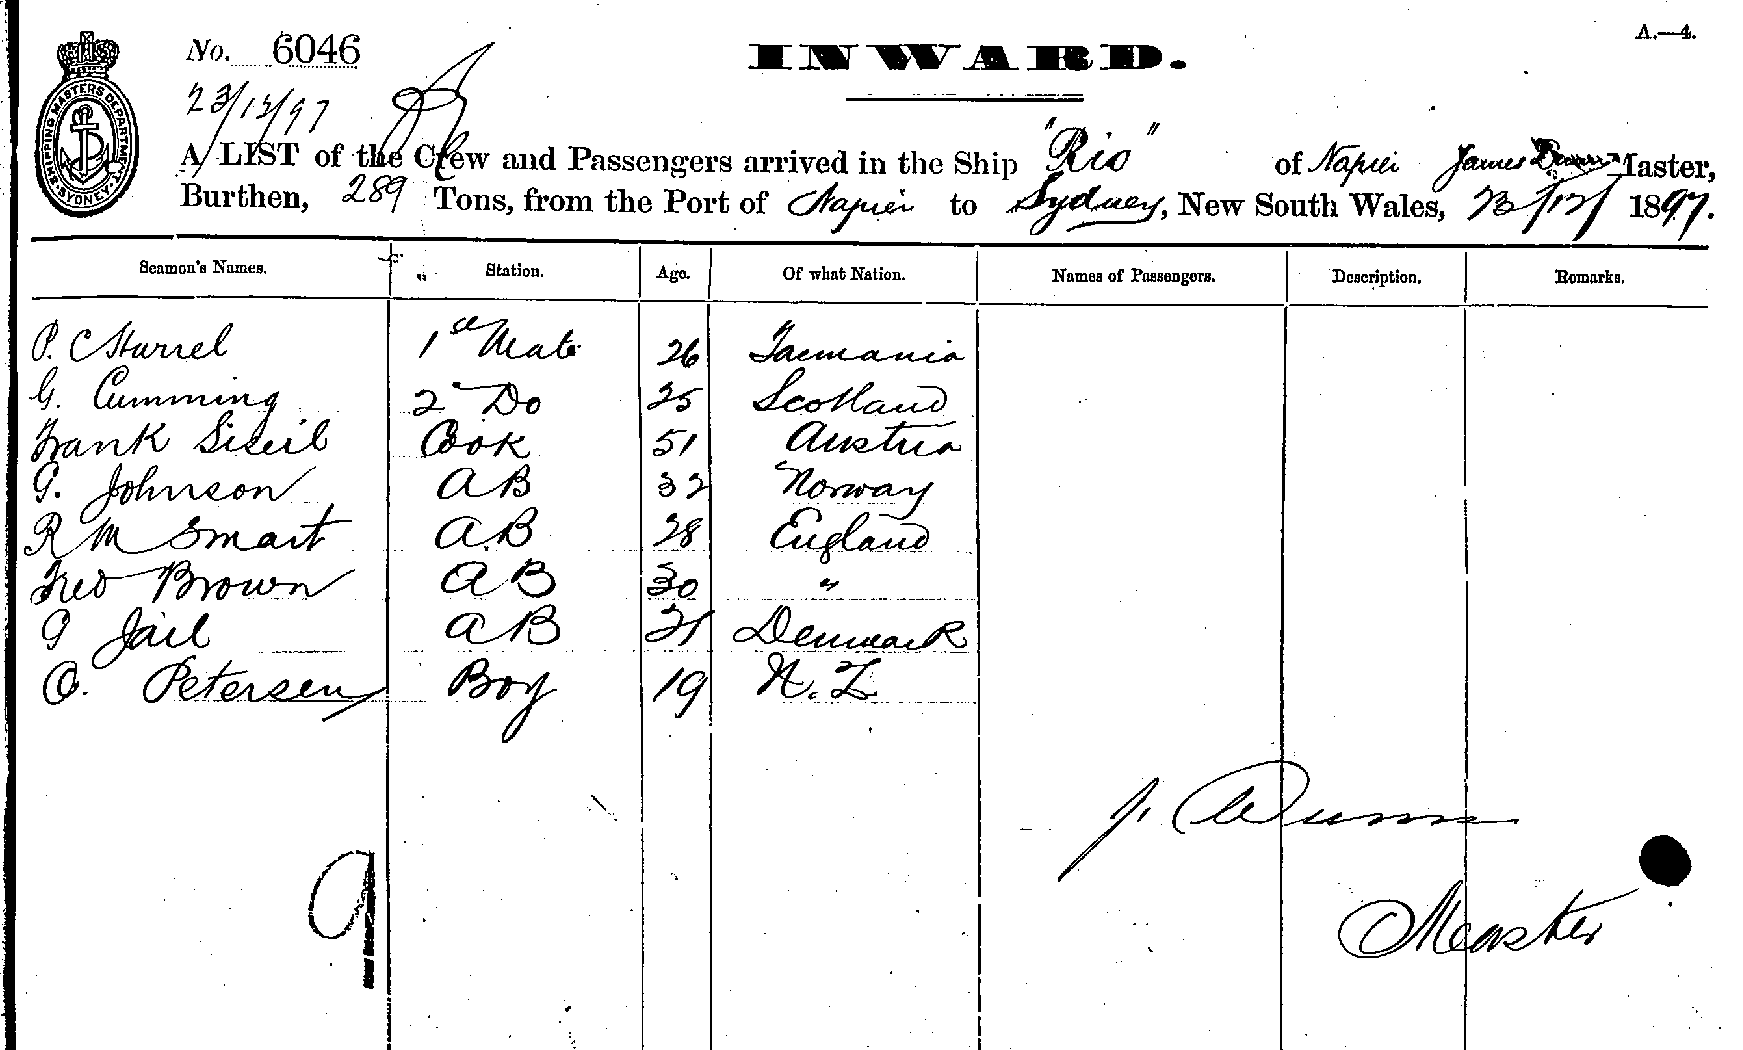 A.—4.
No. 6046
INWARD.
23/12/97
SHIPPING MASTERS DEPARTMENT SYDNEY
A LIST of the Crew and Passengers arrived in the Ship "Rio" of Napier James Master,
Burthen, 289 Tons, from the Port of Napier to Sydney, New South Wales, 23/12/ 1897.
Seamen's Names. Station. Age. Of what Nation. Names of Passengers. Description. Remarks.
P. 1st Mate 26 Tasmania
G. Cumming 2 Do 25 Scotland
Frank Cook 51 Austria
G. Johnson AB 32 Norway
R M Smart A.B 28 England
Fred Brown AB 30 "
Jail AB 21 Denmark
O. Petersen Boy 19 N.Z
J. Dunn
Master